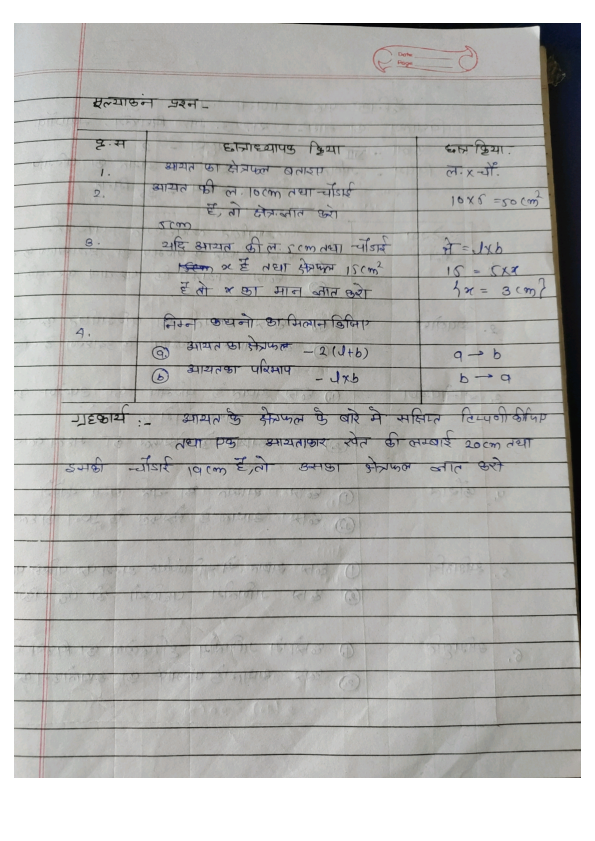 Date
Page
मूल्याकंन प्रश्न -
क्र.स छात्राध्यापक क्रिया छात्र क्रिया.
1. आयत का क्षेत्रफल बताइए ल. x चौ.
2. आयत की ल. 10cm तथा चौडाई
है, तो क्षेत्र. ज्ञात करो 10x5 = 50cm²
5cm
3. यदि आयत की ल. 5cm तथा चौडाई क्षे = l x b
x है तथा क्षेत्रफल 15cm² 15 = 5xx
है तो x का मान ज्ञात करो {x = 3cm}
4. निम्न कथनो का मिलान किजिए
(a) आयत का क्षेत्रफल - 2(l+b) a → b
(b) आयतका परिमाप - l x b b → a
ग्रहकार्य :- आयत के क्षेत्रफल के बारे मे सक्षिप्त टिप्पणी कीजिए
तथा एक आयताकार खेत की लम्बाई 20cm तथा
इसकी चौडाई 19cm है, तो उसका क्षेत्रफल ज्ञात करो